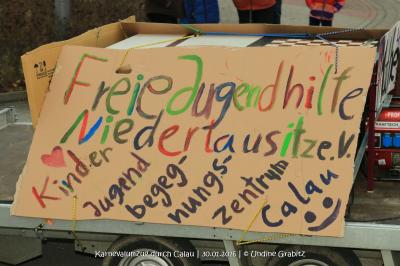 Freie Jugendhilfe
Niederlausitz e.V.
Kinder
Jugend
begeg-
nungs-
zentrum
Calau
Karnevalumzug durch Calau | 30.01.2016 | © Undine Grabitz